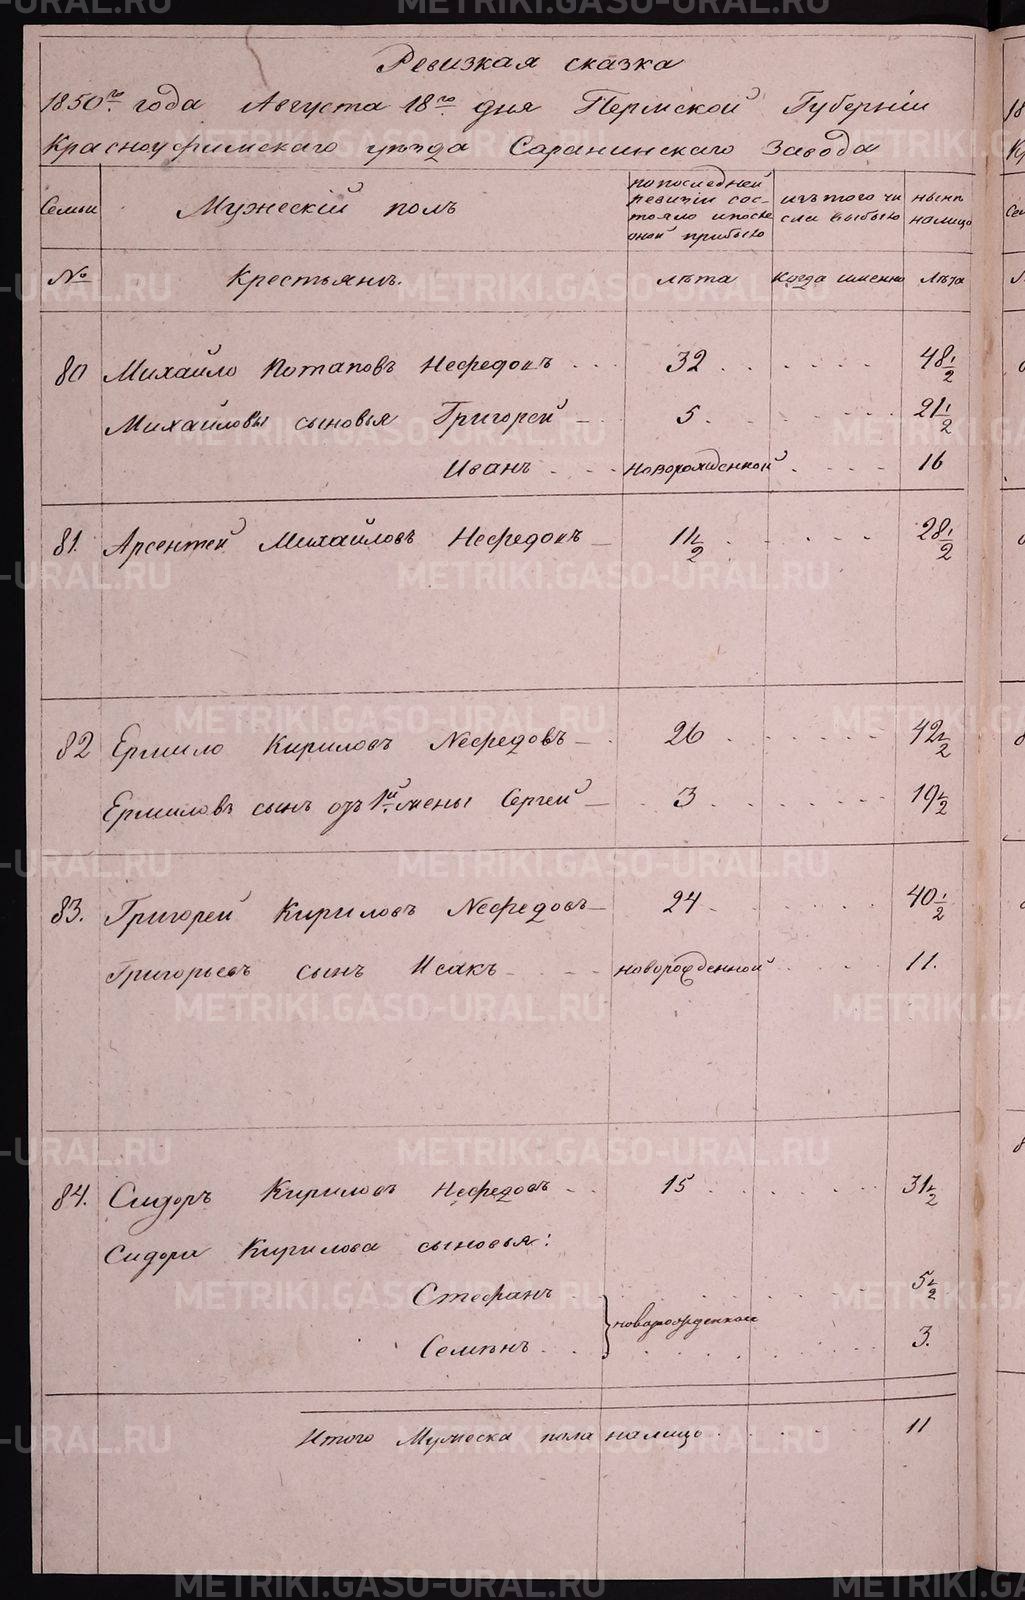 Ревизкая сказка
1850го года Августа 18го дня Пермской Губерніи
Красноуфимскаго уѣзда Саранинскаго Завода
Семьи
Мужескій полъ
по последней ревизіи состояло и после оной прибыло
изъ того числа выбыло
нынѣ налицо
№
Крестьянъ.
лѣта
когда именно
лѣта
80 Михайло Потаповъ Нефедовъ 32 48 1/2
Михайловы сыновья Григорей 5 21 1/2
Иванъ новорожденной 16
81. Арсентей Михайловъ Нефедовъ 11 1/2 28 1/2
82 Ермило Кириловъ Нефедовъ 26 42 1/2
Ермиловъ сынъ отъ 1й жены Сергей 3 19 1/2
83. Григорей Кириловъ Нефедовъ 24 40 1/2
Григорьевъ сынъ Исакъ новорожденной 11.
84. Сидоръ Кириловъ Нефедовъ 15 31 1/2
Сидора Кирилова сыновья:
Стефанъ 5 1/2
новорожденной
Семенъ 3.
Итого Мужеска пола налицо 11
METRIKI.GASO-URAL.RU